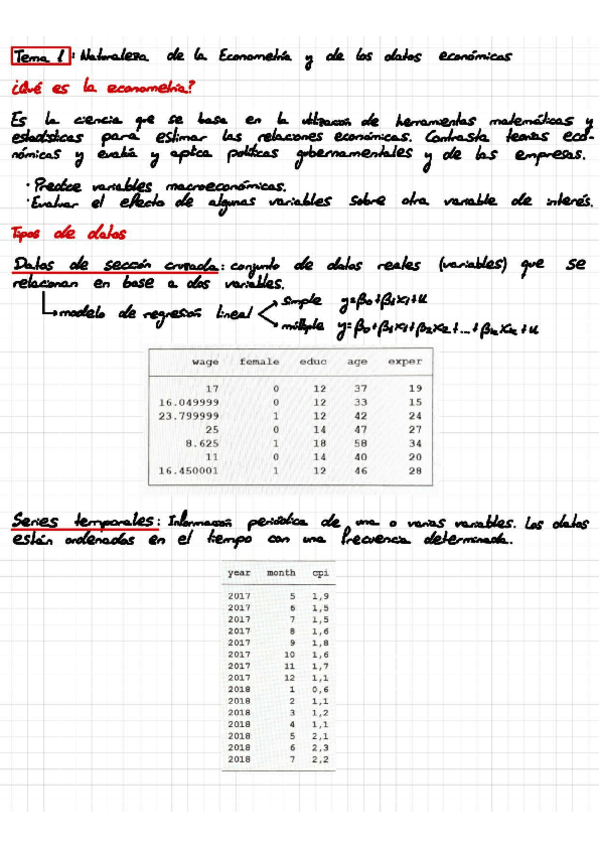 Tema 1: Naturaleza de la Econometría y de los datos económicos
¿Qué es la econometría?
Es la ciencia que se basa en la utilización de herramientas matemáticas y
estadísticas para estimar las relaciones económicas. Contrasta teorías eco-
nómicas y evalúa y aplica políticas gubernamentales y de las empresas.
· Predice variables macroeconómicas.
· Evaluar el efecto de algunas variables sobre otra variable de interés.
Tipos de datos
Datos de sección cruzada: conjunto de datos reales (variables) que se
relacionan en base a dos variables.
↳ modelo de regresión lineal
simple y=β0+β1x1+u
múltiple y=β0+β1x1+β2x2+...+βkxk+u
wage female educ age exper
17 0 12 37 19
16.049999 0 12 33 15
23.799999 1 12 42 24
25 0 14 47 27
8.625 1 18 58 34
11 0 14 40 20
16.450001 1 12 46 28
Series temporales: Información periódica de una o varias variables. Los datos
están ordenados en el tiempo con una frecuencia determinada.
year month cpi
2017 5 1,9
2017 6 1,5
2017 7 1,5
2017 8 1,6
2017 9 1,8
2017 10 1,6
2017 11 1,7
2017 12 1,1
2018 1 0,6
2018 2 1,1
2018 3 1,2
2018 4 1,1
2018 5 2,1
2018 6 2,3
2018 7 2,2